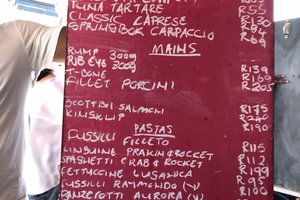 TUNA TARTARE
CLASSIC CAPRESE R130
SPRINGBOK CARPACCIO R64
MAINS
RUMP 300g R139
RIB EYE 300g
T-BONE R205
FILLET PORCINI
SCOTTISH SALMON R175
KINGKLIP
R190
PASTAS
FUSSILLI FILLETO R115
LINGUINE PRAWN & ROCKET R112
SPAGHETTI CRAB & ROCKET R199
FETTUCCINE LUGANICA R95
FUSILLI RAIMONDO (V) R100
PANZEROTTI AURORA (V)